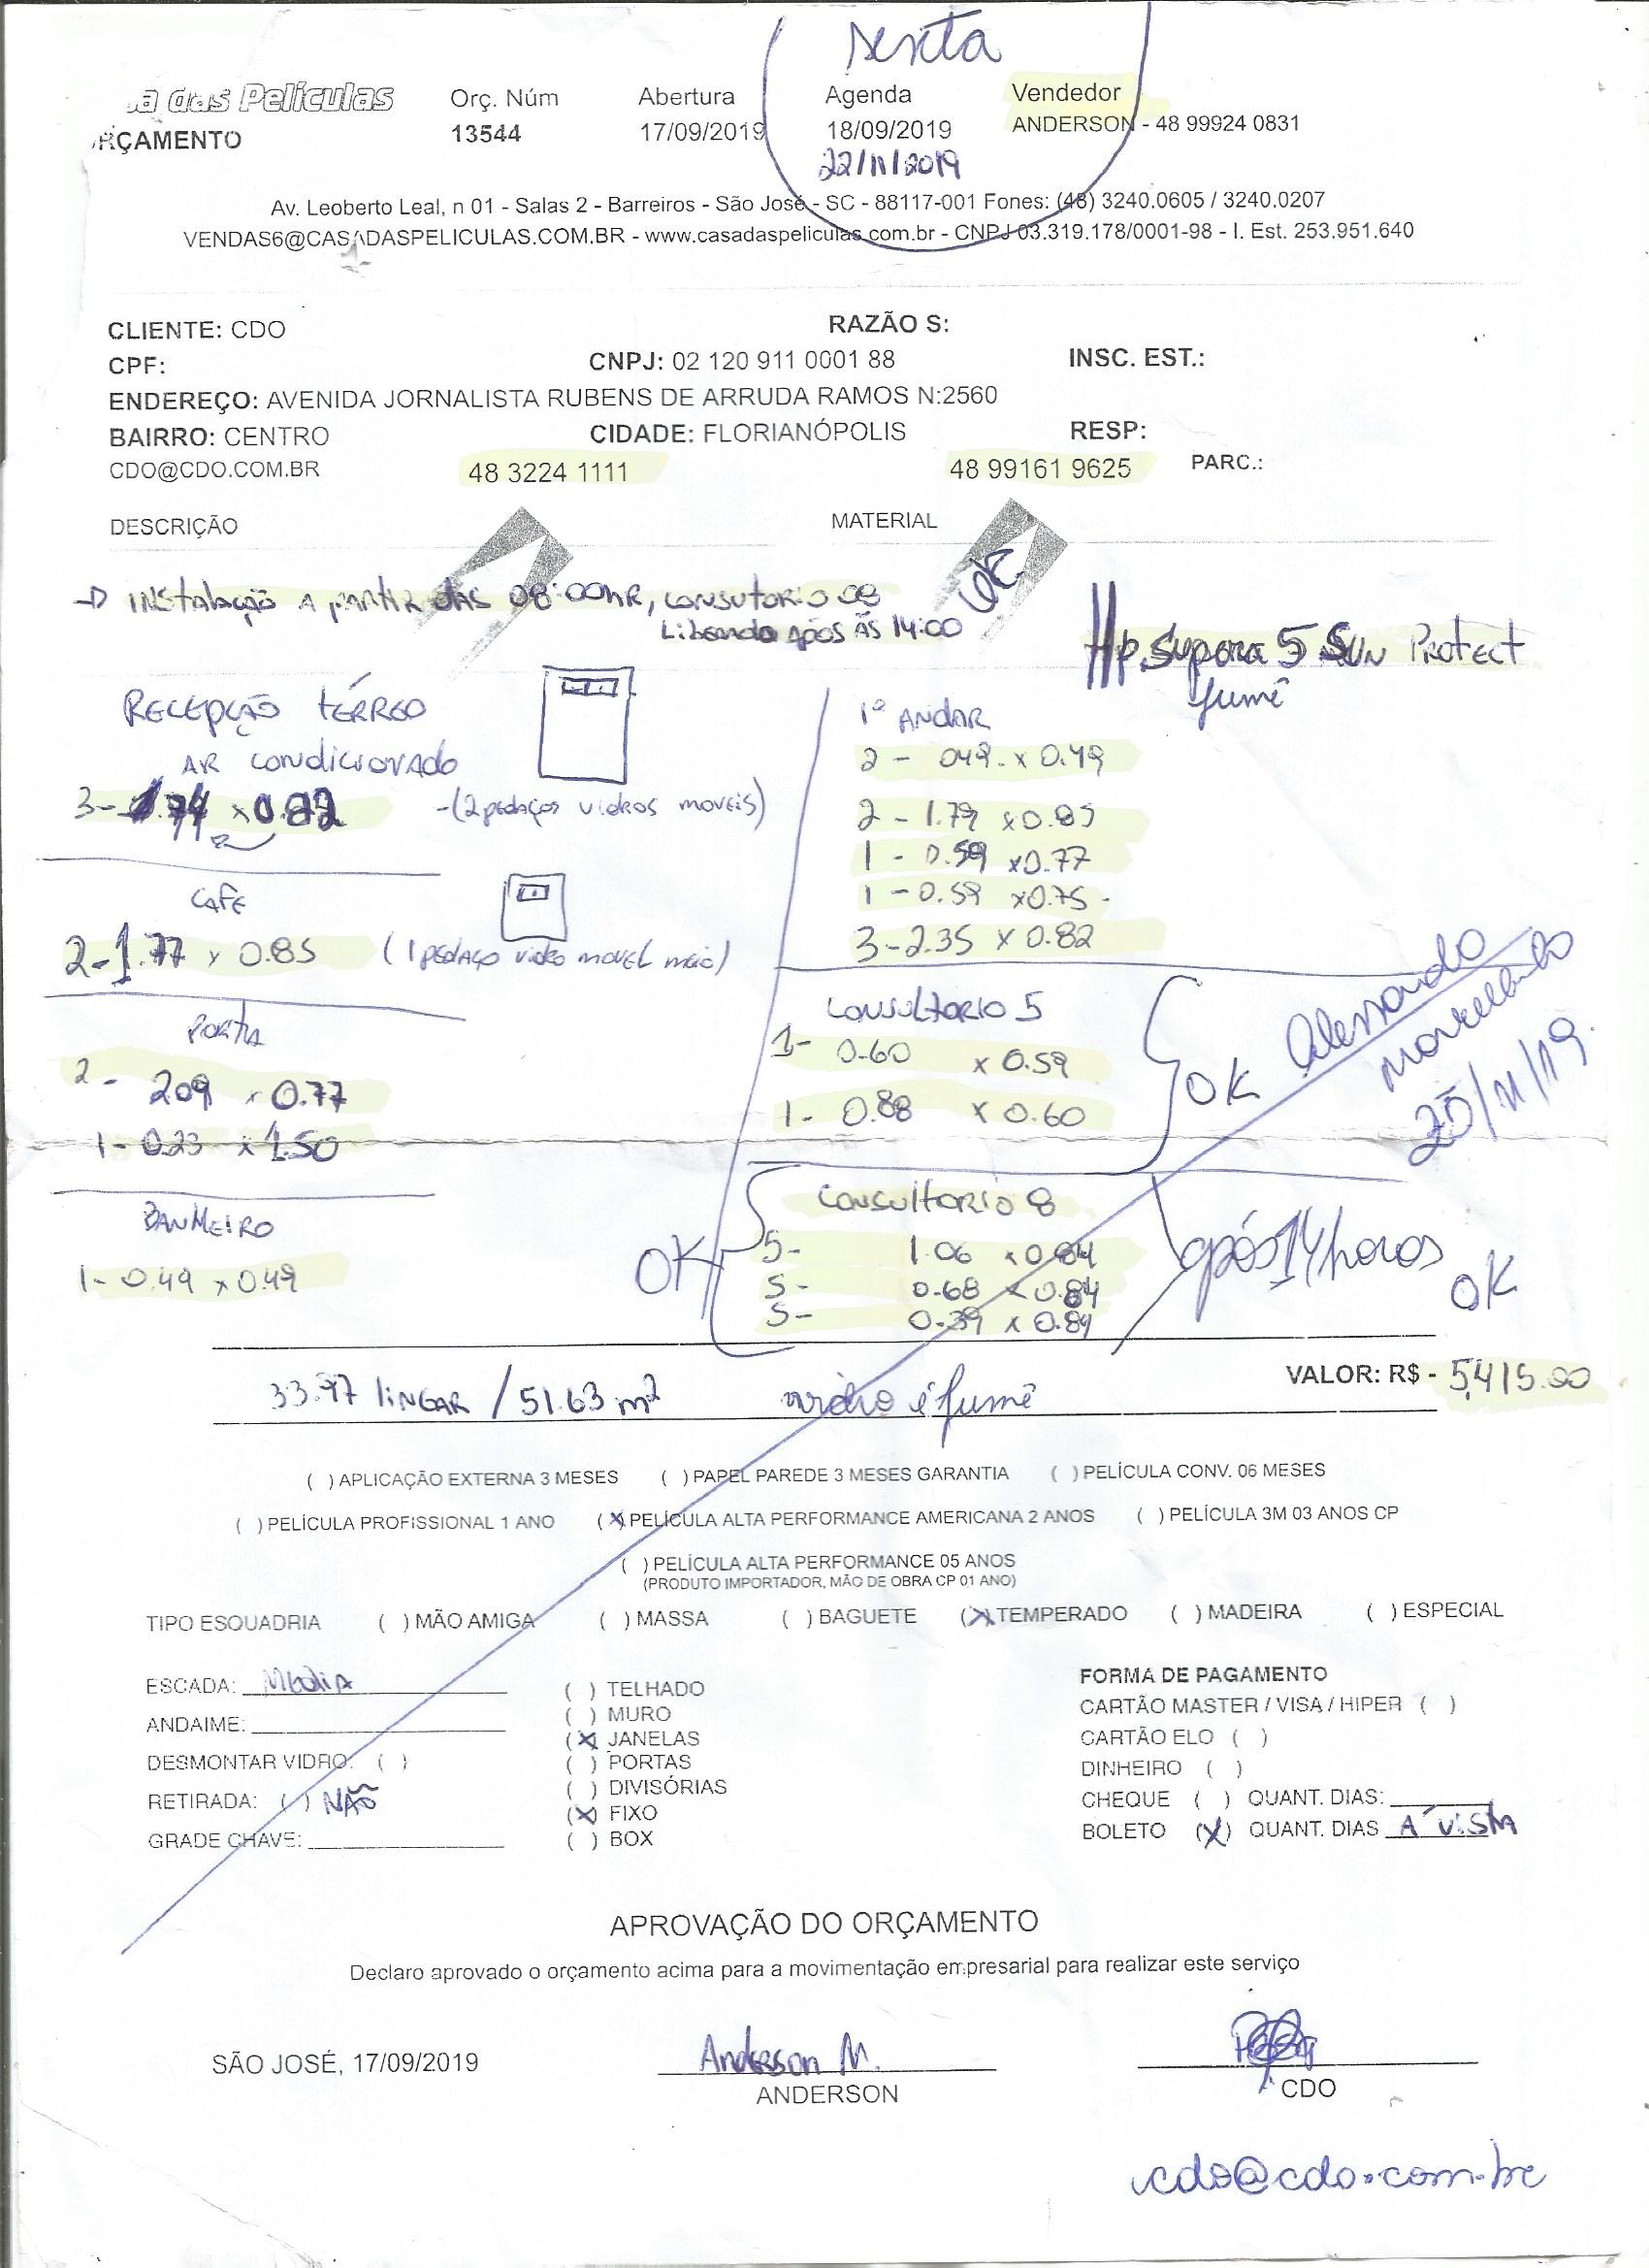 sexta
a das Películas
RÇAMENTO
Orç. Núm
13544
Abertura
17/09/2019
Agenda
18/09/2019
22/11/2019
Vendedor
ANDERSON - 48 99924 0831
Av. Leoberto Leal, n 01 - Salas 2 - Barreiros - São José - SC - 88117-001 Fones: (48) 3240.0605 / 3240.0207
VENDAS6@CASADASPELICULAS.COM.BR - www.casadaspeliculas.com.br - CNPJ 03.319.178/0001-98 - I. Est. 253.951.640
CLIENTE: CDO RAZÃO S:
CPF: CNPJ: 02 120 911 0001 88 INSC. EST.:
ENDEREÇO: AVENIDA JORNALISTA RUBENS DE ARRUDA RAMOS N:2560
BAIRRO: CENTRO CIDADE: FLORIANÓPOLIS RESP:
CDO@CDO.COM.BR 48 3224 1111 48 99161 9625 PARC.:
DESCRIÇÃO MATERIAL
INStalação A pARTiR DAS 08:00HR, CONSUTORIO 08
Liberado após ÀS 14:00
Hp. Supora 5 SUN Protect
fumê
RECEPÇÃO TÉRREO
AR CONDICIONADO
x 0.82 -(2 pedaços vidros moveis)
CAFE
2-1.77 x 0.85 (1 pedaço vidro movel meio)
PORTA
2- 209 x 0.77
1- 0.23 x 1.50
BANHEIRO
1- 0.49 x 0.49
1º ANDAR
2 - 049 x 0.49
2 - 1.79 x 0.85
1 - 0.59 x 0.77
1 - 0.59 x 0.75
3 - 2.35 x 0.82
CONSULTORIO 5
1- 0.60 x 0.59
1- 0.88 x 0.60
OK
Alessandro
25/11/19
CONSULTORIO 8
OK
5- 1.06 x 0.84
5- 0.68 x 0.84
5- 0.39 x 0.84
após 14 horas
OK
33.97 LINEAR / 51.63 m² vidro é fumê
VALOR: R$ - 5,415.00
( ) APLICAÇÃO EXTERNA 3 MESES ( ) PAPEL PAREDE 3 MESES GARANTIA ( ) PELÍCULA CONV. 06 MESES
( ) PELÍCULA PROFISSIONAL 1 ANO (X) PELÍCULA ALTA PERFORMANCE AMERICANA 2 ANOS ( ) PELÍCULA 3M 03 ANOS CP
( ) PELÍCULA ALTA PERFORMANCE 05 ANOS
(PRODUTO IMPORTADOR, MÃO DE OBRA CP 01 ANO)
TIPO ESQUADRIA ( ) MÃO AMIGA ( ) MASSA ( ) BAGUETE (X) TEMPERADO ( ) MADEIRA ( ) ESPECIAL
ESCADA: MÉDIA
ANDAIME:
DESMONTAR VIDRO: ( )
RETIRADA: ( ) NÃO
GRADE CHAVE:
( ) TELHADO
( ) MURO
(X) JANELAS
( ) PORTAS
( ) DIVISÓRIAS
(X) FIXO
( ) BOX
FORMA DE PAGAMENTO
CARTÃO MASTER / VISA / HIPER ( )
CARTÃO ELO ( )
DINHEIRO ( )
CHEQUE ( ) QUANT. DIAS:
BOLETO (X) QUANT. DIAS À VISTA
APROVAÇÃO DO ORÇAMENTO
Declaro aprovado o orçamento acima para a movimentação empresarial para realizar este serviço
SÃO JOSÉ, 17/09/2019
Anderson M.
ANDERSON
CDO
cdo@cdo.com.br